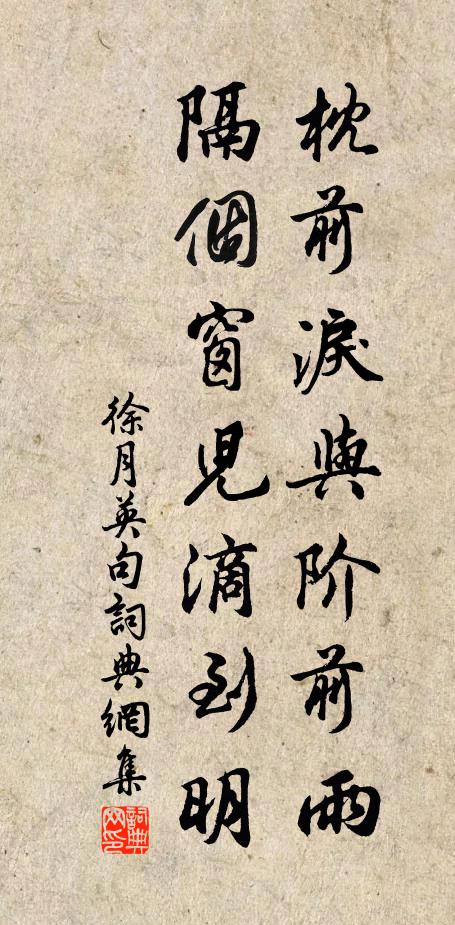 枕前淚與阶前雨
隔個窗児滴到明
徐月英句詞典網集
詞典
网印